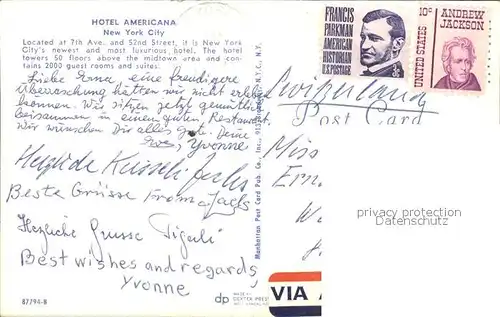 HOTEL AMERICANA
New York City
Located at 7th Ave. and 52nd Street, it is New York
City's newest and most luxurious hotel. The hotel
towers 50 floors above the midtown area and con-
tains 2000 guest rooms and suites.
Liebe Erna, eine freudigere
Überraschung hätten wir nicht erleben
können. Wir sitzen jetzt gemütlich
beisammen in einem guten Restaurant.
Wir wünschen Dir alles gute. Deine
Yvonne
Herzliche
Beste Grüsse from
Herzliche Grüsse
Best wishes and regards,
Yvonne
87794-B
dp
DEXTER PRESS
Manhattan Post Card Pub. Co., Inc.
N.Y.C., N.Y.
FRANCIS
PARKMAN
AMERICAN
HISTORIAN
US POSTAGE
3c
10c
ANDREW
JACKSON
UNITED STATES
Switzerland
Post Card
Miss
privacy protection
Datenschutz
VIA